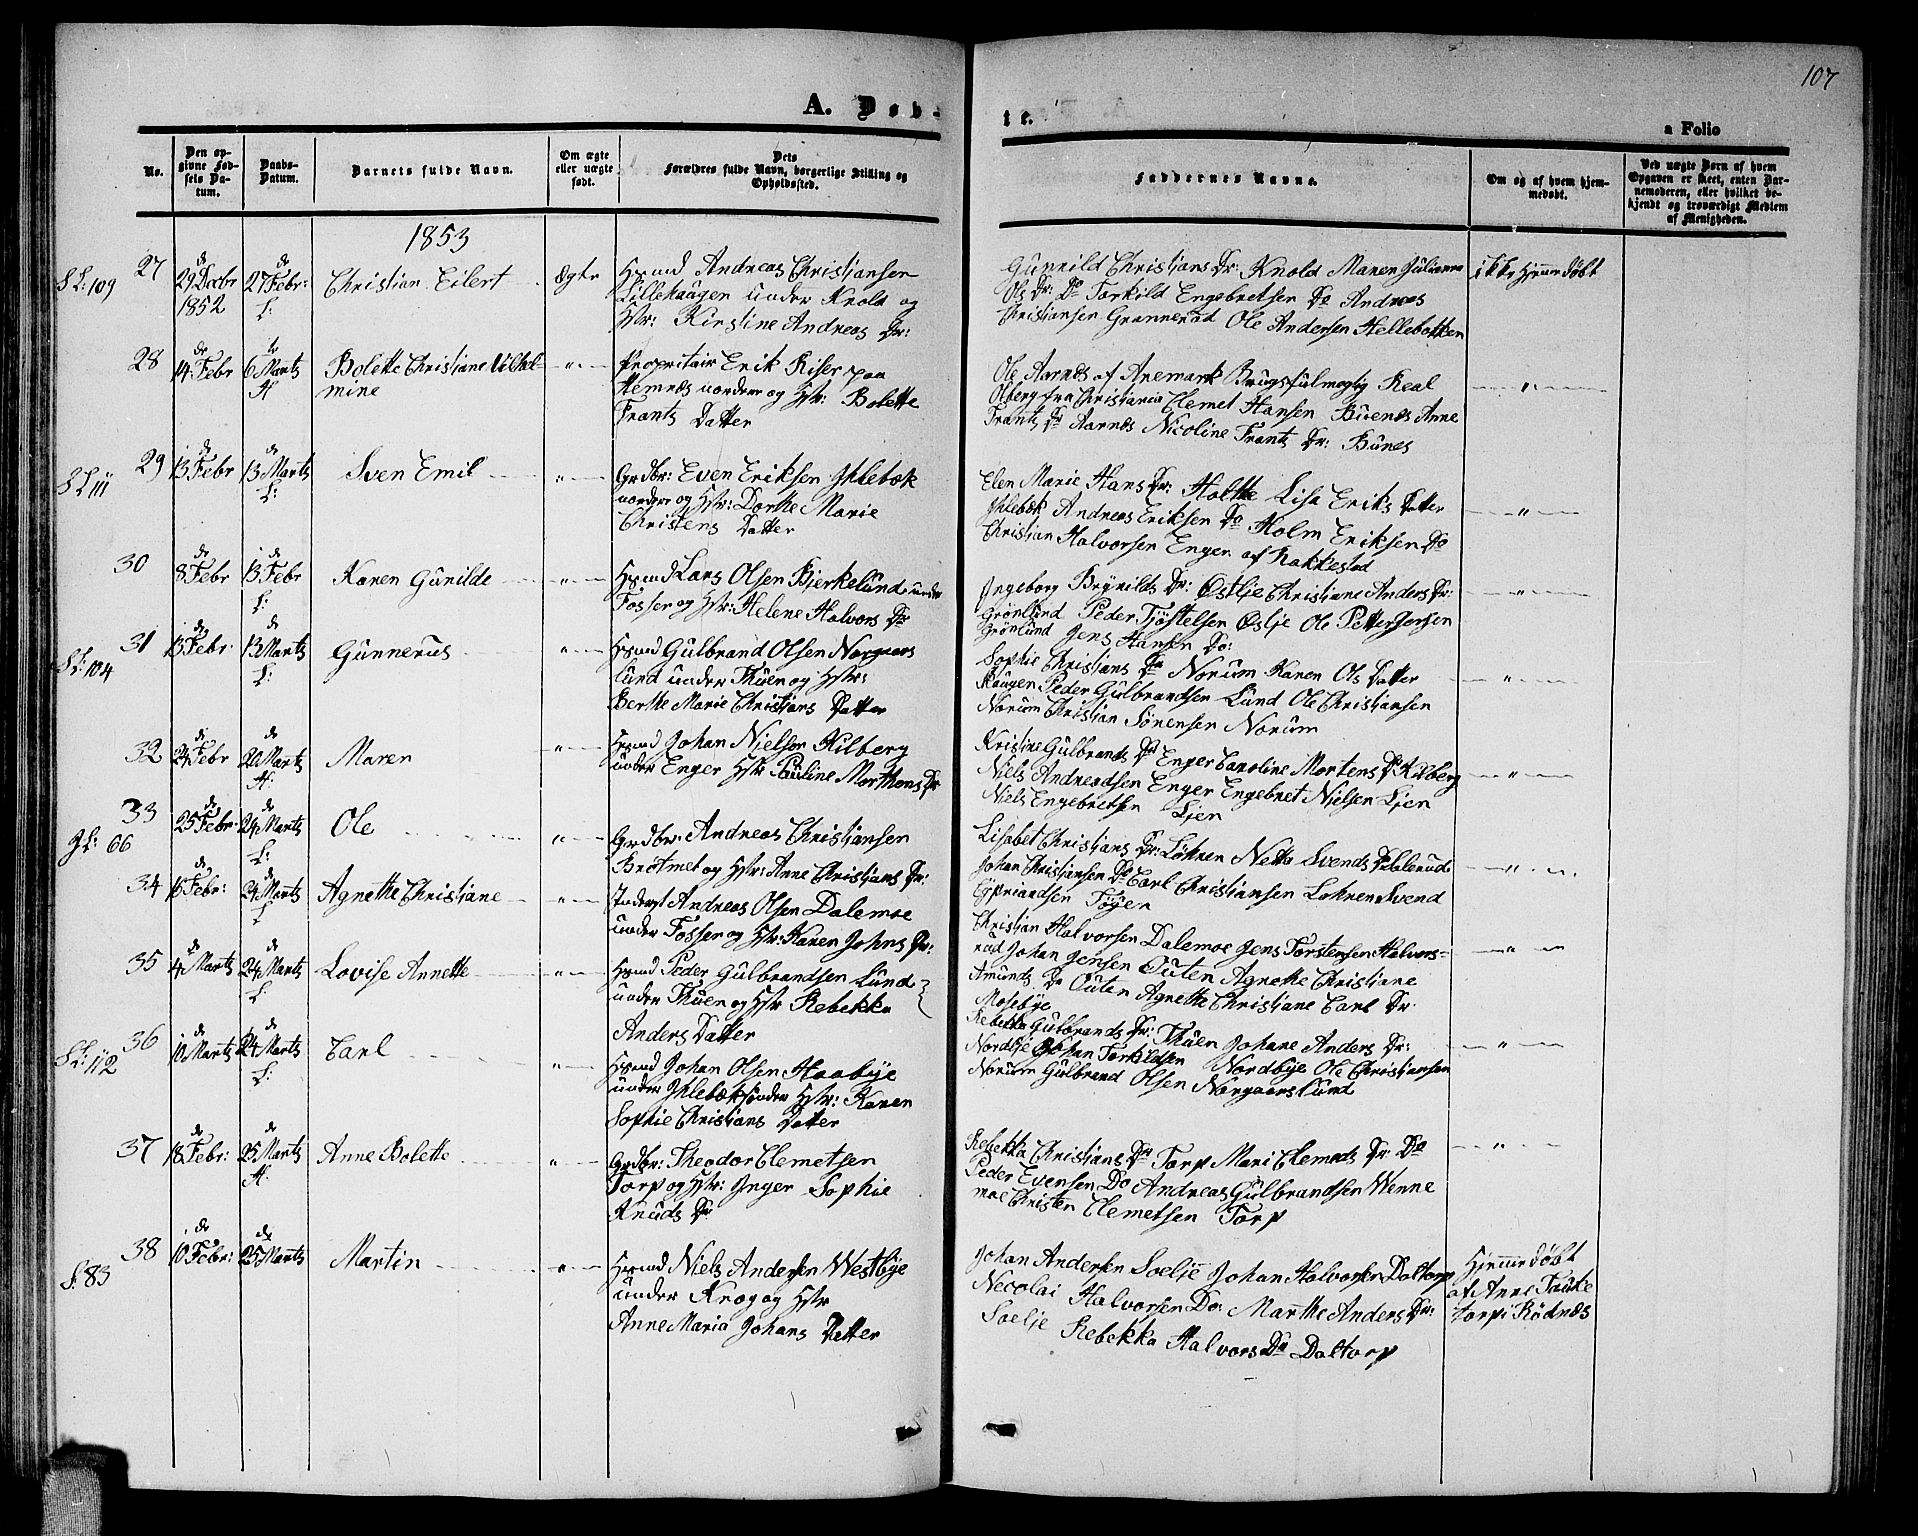 107
A. Døb-
te.
a Folio
No.
Den op-
givne Fød-
sels Da-
tum.
Daabs-
Datum.
Barnets fulde Navn.
Om ægte
eller uægte
født.
Dets
Forældres fulde Navn, borgerlige Stilling og
Opholdssted.
Faddernes Navne.
Om og af hvem hjem-
medøbt.
Ved uægte Børn af hvem
Opgaven er skeet, enten Bar-
nemoderen, eller hvilket be-
kjendt og troværdigt Medlem
af Menigheden.
1853
S L: 109
27
d 29 Decbr 1852
d 27 Febr: L:
Christian Eilert
Ægte
Hsmd Andreas Christiansen
Lillehaugen under Krold og
Hstr: Kirstine Andreas Dr:
Gunnild Christians Dr: Knold Maren Julianne
Ols Dr: Do Torkild Engebretsen Do Andreas
Christiansen Grannerød Ole Andersen Hellebøtten
ikke hjemmedøbt
28
d 14 Febr
d 6 Marts H
Bolette Christiane Vilhel-
mine
— " —
Proprietair Erik Riser paa
Hemnæs nordre og Hstr: Bolette
Frants Datter
Ole Aarnæs af Aremark Brugsfulmægtig Real
Olberg fra Christiania Clemet Hansen Buenæs Anne
Frants Dr Aarnæs Nicoline Frants Dr: Bunes
— " —
S L 111
29
d 13 Febr
d 13 Marts L:
Sven Emil
— " —
Grdbr: Even Eriksen Ihlebæk
nordre og Hstr: Dorthe Marie
Christens Datter
Elen Marie Hans Dr: Holtke Lisa Eriks Datter
Ihlebæk Andreas Eriksen Do Holm Eriksen Do
Christian Halvorsen Enger af Rakkestad
— " —
30
d 8 Febr
d 13 Febr L:
Karen Gunilde
— " —
Hsmd Lars Olsen Bjerkelund under
Fosser og Hstr: Helene Halvors Dr
Ingeborg Brynilds Dr: Østlie Christiane Anders Dr:
Grønlund Peder Tjøstelsen Øslje Ole Petter Jensen
Grønlund Jens Hansen Do:
— " —
S L: 104
31
d 13 Febr
d 13 Marts L:
Gunnerus
— " —
Hsmd Gulbrand Olsen Norgaars
lund under Thuen og Hstr:
Berthe Marie Christians Datter
Sophie Christians Dr Norum Karen Ols Datter
Haugen Peder Gulbrandsen Lund Ole Christiansen
Norum Christian Sørensen Norum
— " —
32
d 24 Febr
d 20 Marts H:
Maren
— " —
Hsmd Johan Nielsen Kilberg
under Enger Hstr Pauline Morthens Dr
Kristine Gulbrands Dr Enger Caroline Mortens Dr Kilberg
Niels Andreadsen Enger Engebret Nielsen Lien
Niels Engebretsen Lien
— " —
g L: 66
33
d 25 Febr
d 24 Marts L:
Ole
— " —
Grdbr: Andreas Christiansen
Brøtmet og Hstr: Anne Christians Dr:
Lisabet Christians Dr: Løhren Netta Svends Dr
Johan Christiansen Do Carl Christiansen Løhren Svend
Cyprianasen Føyen
— " —
34
d 16 Febr:
d 24 Marts L
Agnette Christiane
— " —
Andreas Olsen Dalemoe
under Fosser og Hstr: Karen Johns Dr:
Christian Halvorsen Dalemoe Jens Torstensen Halvors-
rud Johan Jensen Outen Agnethe Christiane
Amunds Dr Outen Agnethe Christiane Carl Dr:
Mosebye
— " —
35
d 4 Marts
d 24 Marts L
Lovise Annette
— " —
Hsmd Peder Gulbrandsen Lund
under Thuen og Hstr Rebekka
Anders Datter
Rebekka Gulbrands Dr: Thuen Johane Anders Dr:
Nordbye Johan Torkildsen Nordbye Ole Christiansen
Norum Gulbrand Olsen Norgaarslund
— " —
S L: 112
36
d 10 Marts
d 24 Marts L:
Carl
— " —
Hsmd Johan Olsen Haabye
under Ihlebæk søndre Hstr: Karen
Sophie Christians Datter
37
d 18 Febr:
d 25 Marts H:
Anne Bolette
— " —
Grdbr: Theodor Clemetsen
Torp og Hstr: Inger Sophie
Knuds Dr
Rebekka Christians Dr Torp Mari Clemeds Dr Do
Peder Evensen Do Andreas Gulbrandsen Wenne
moe Christen Clemetsen Torp
— " —
S: 83
38
d 10 Febr:
d 25 Marts
Martin
— " —
Hsmd Niels Andersen Westbye
under Krog og Hstr
Anne Maria Johans Datter
Johan Andersen Soelje Johan Halvorsen Daltorp
Necolai Halvorsen Do: Marthe Anders Dr:
Soelje Rebekka Halvors Dr Daltorp
Hjemmedøbt
af Anne Taake
torp i Rødnæs